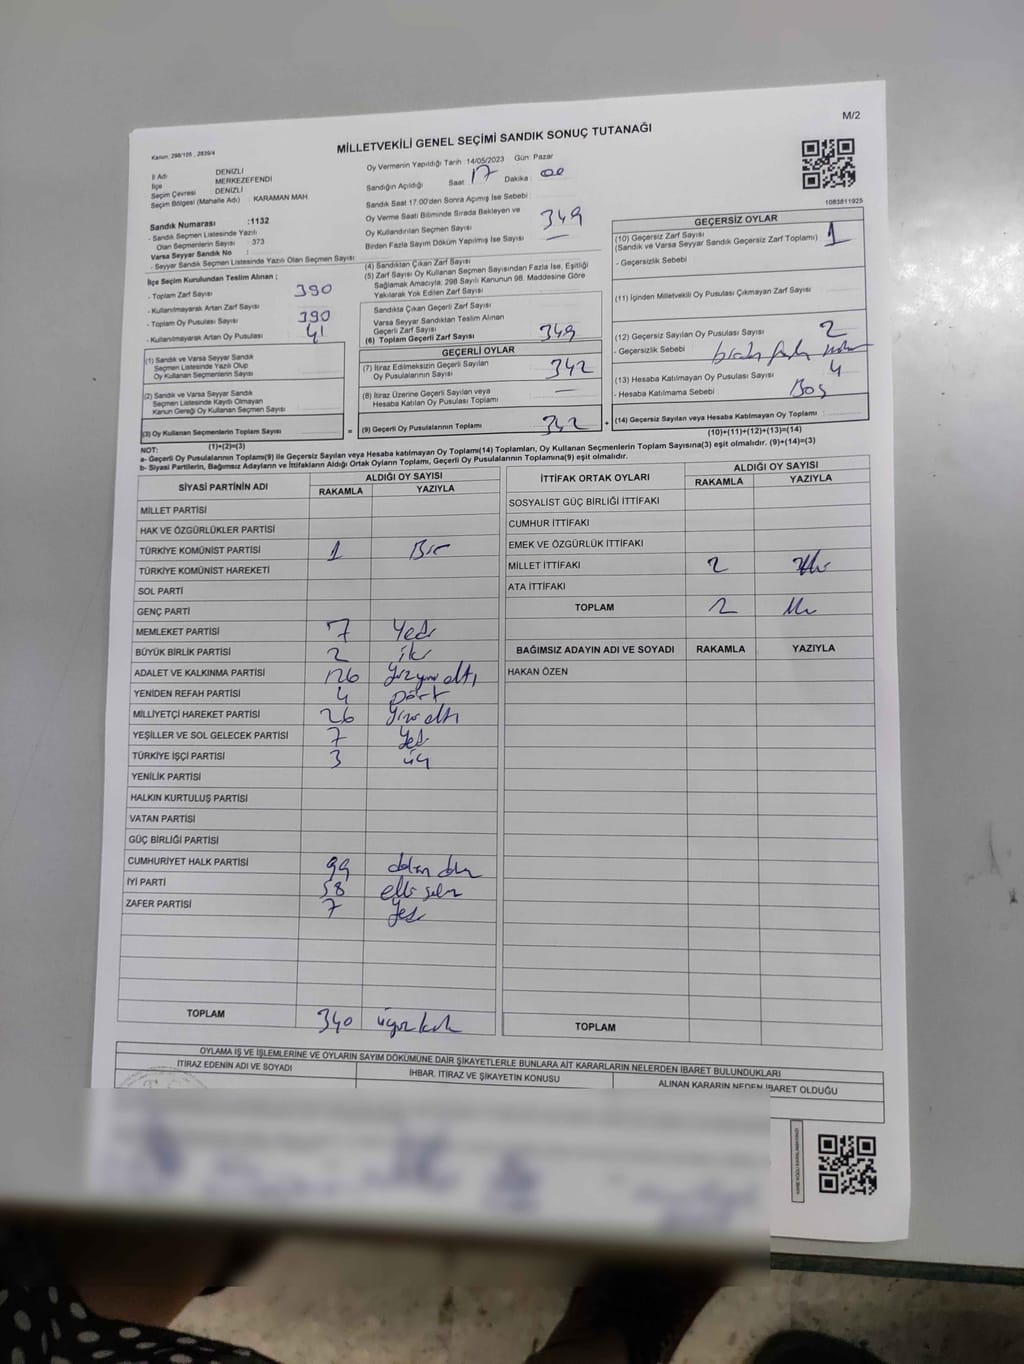 M/2
MİLLETVEKİLİ GENEL SEÇİMİ SANDIK SONUÇ TUTANAĞI
Kanun: 298/105 , 2839/4
İl Adı DENİZLİ
İlçe MERKEZEFENDİ
Seçim Çevresi DENİZLİ
Seçim Bölgesi (Mahalle Adı) : KARAMAN MAH
Sandık Numarası :1132
- Sandık Seçmen Listesinde Yazılı
Olan Seçmenlerin Sayısı : 373
Varsa Seyyar Sandık No :
- Seyyar Sandık Seçmen Listesinde Yazılı Olan Seçmen Sayısı :
Oy Vermenin Yapıldığı Tarih :14/05/2023 Gün: Pazar
Sandığın Açıldığı Saat 17 Dakika : 00
Sandık Saat 17:00'den Sonra Açımış İse Sebebi :
Oy Verme Saati Bitiminde Sırada Bekleyen ve
Oy Kullandırılan Seçmen Sayısı 349
Birden Fazla Sayım Döküm Yapılmış İse Sayısı —
1083811925
İlçe Seçim Kurulundan Teslim Alınan ;
- Toplam Zarf Sayısı 390
- Kullanılmayarak Artan Zarf Sayısı
- Toplam Oy Pusulası Sayısı 390
- Kullanılmayarak Artan Oy Pusulası 41
(1) Sandık ve Varsa Seyyar Sandık
Seçmen Listesinde Yazılı Olup
Oy Kullanan Seçmenlerin Sayısı
(2) Sandık ve Varsa Seyyar Sandık
Seçmen Listesinde Kayıtlı Olmayan
Kanun Gereği Oy Kullanan Seçmen Sayısı
(3) Oy Kullanan Seçmenlerin Toplam Sayısı
(1)+(2)=(3)
(4) Sandıktan Çıkan Zarf Sayısı
(5) Zarf Sayısı Oy Kullanan Seçmen Sayısından Fazla İse, Eşitliği
Sağlamak Amacıyla; 298 Sayılı Kanunun 98. Maddesine Göre
Yakılarak Yok Edilen Zarf Sayısı
Sandıkta Çıkan Geçerli Zarf Sayısı
Varsa Seyyar Sandıktan Teslim Alınan
Geçerli Zarf Sayısı
(6) Toplam Geçerli Zarf Sayısı 349
GEÇERLİ OYLAR
(7) İtiraz Edilmeksizin Geçerli Sayılan
Oy Pusulalarının Sayısı 342
(8) İtiraz Üzerine Geçerli Sayılan veya
Hesaba Katılan Oy Pusulası Toplamı —
= (9) Geçerli Oy Pusulalarının Toplamı 342 +
GEÇERSİZ OYLAR
(10) Geçersiz Zarf Sayısı
(Sandık ve Varsa Seyyar Sandık Geçersiz Zarf Toplamı) 1
- Geçersizlik Sebebi
(11) İçinden Milletvekili Oy Pusulası Çıkmayan Zarf Sayısı
(12) Geçersiz Sayılan Oy Pusulası Sayısı 2
- Geçersizlik Sebebi
(13) Hesaba Katılmayan Oy Pusulası Sayısı 4
- Hesaba Katılmama Sebebi Boş
(14) Geçersiz Sayılan veya Hesaba Katılmayan Oy Toplamı
(10)+(11)+(12)+(13)=(14)
NOT:
a- Geçerli Oy Pusulalarının Toplamı(9) ile Geçersiz Sayılan veya Hesaba katılmayan Oy Toplamı(14) Toplamları, Oy Kullanan Seçmenlerin Toplam Sayısına(3) eşit olmalıdır. (9)+(14)=(3)
b- Siyasi Partilerin, Bağımsız Adayların ve İttifakların Aldığı Ortak Oyların Toplamı, Geçerli Oy Pusulalarının Toplamına(9) eşit olmalıdır.
SİYASİ PARTİNİN ADI ALDIĞI OY SAYISI
RAKAMLA YAZIYLA
MİLLET PARTİSİ
HAK VE ÖZGÜRLÜKLER PARTİSİ
TÜRKİYE KOMÜNİST PARTİSİ 1 Bir
TÜRKİYE KOMÜNİST HAREKETİ
SOL PARTİ
GENÇ PARTİ
MEMLEKET PARTİSİ 7 Yedi
BÜYÜK BİRLİK PARTİSİ 2 iki
ADALET VE KALKINMA PARTİSİ 126 yüzyirmi altı
YENİDEN REFAH PARTİSİ 4 dört
MİLLİYETÇİ HAREKET PARTİSİ 26 Yirmi altı
YEŞİLLER VE SOL GELECEK PARTİSİ 7 Yedi
TÜRKİYE İŞÇİ PARTİSİ 3 üç
YENİLİK PARTİSİ
HALKIN KURTULUŞ PARTİSİ
VATAN PARTİSİ
GÜÇ BİRLİĞİ PARTİSİ
CUMHURİYET HALK PARTİSİ 99 doksan dokuz
İYİ PARTİ 58 elli sekiz
ZAFER PARTİSİ 7 Yedi
TOPLAM 340 üçyüz kırk
İTTİFAK ORTAK OYLARI ALDIĞI OY SAYISI
RAKAMLA YAZIYLA
SOSYALİST GÜÇ BİRLİĞİ İTTİFAKI
CUMHUR İTTİFAKI
EMEK VE ÖZGÜRLÜK İTTİFAKI
MİLLET İTTİFAKI 2 iki
ATA İTTİFAKI
TOPLAM 2 iki
BAĞIMSIZ ADAYIN ADI VE SOYADI RAKAMLA YAZIYLA
HAKAN ÖZEN
TOPLAM
OYLAMA İŞ VE İŞLEMLERİNE VE OYLARIN SAYIM DÖKÜMÜNE DAİR ŞİKAYETLERLE BUNLARA AİT KARARLARIN NELERDEN İBARET BULUNDUKLARI
İTİRAZ EDENİN ADI VE SOYADI İHBAR, İTİRAZ VE ŞİKAYETİN KONUSU ALINAN KARARIN NEDEN İBARET OLDUĞU